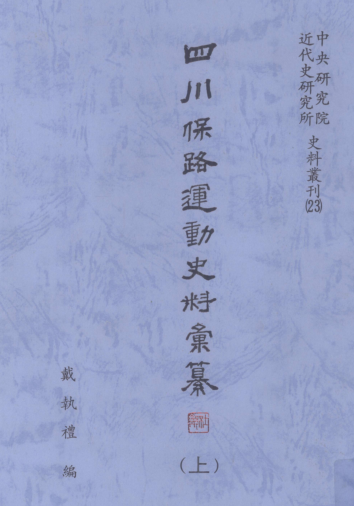 中央研究院
近代史研究所
史料叢刊(23)
四川保路運動史料彙纂
(上)
戴執禮 編